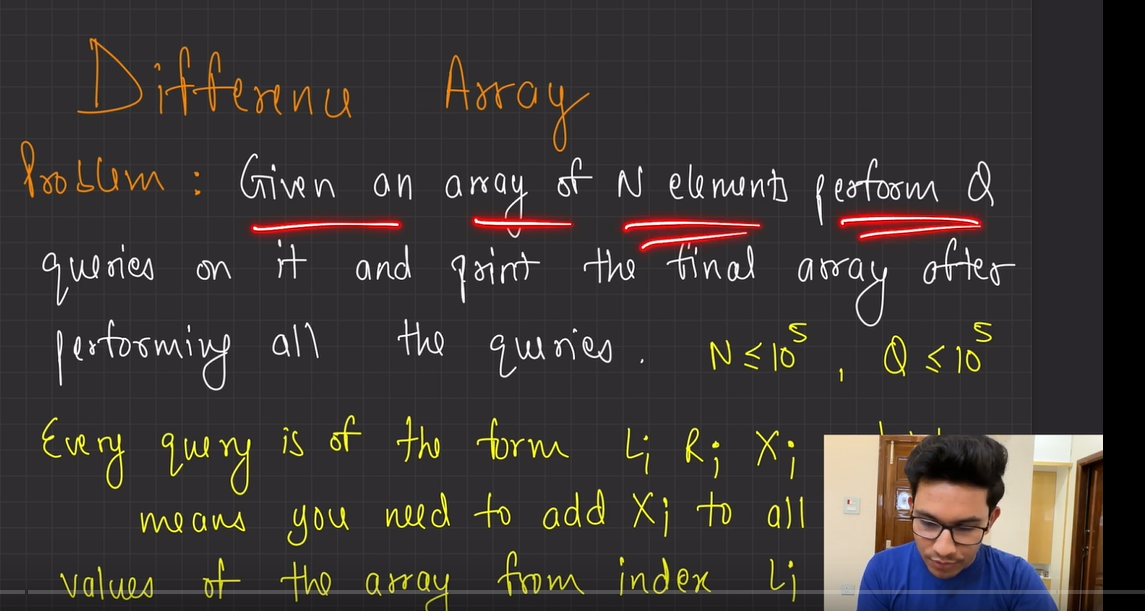 Difference Array
Problem : Given an array of N elements perform Q
queries on it and print the final array after
performing all the queries . N ≤ 10^5 , Q ≤ 10^5
Every query is of the form Li Ri Xi
means you need to add Xi to all
values of the array from index Li